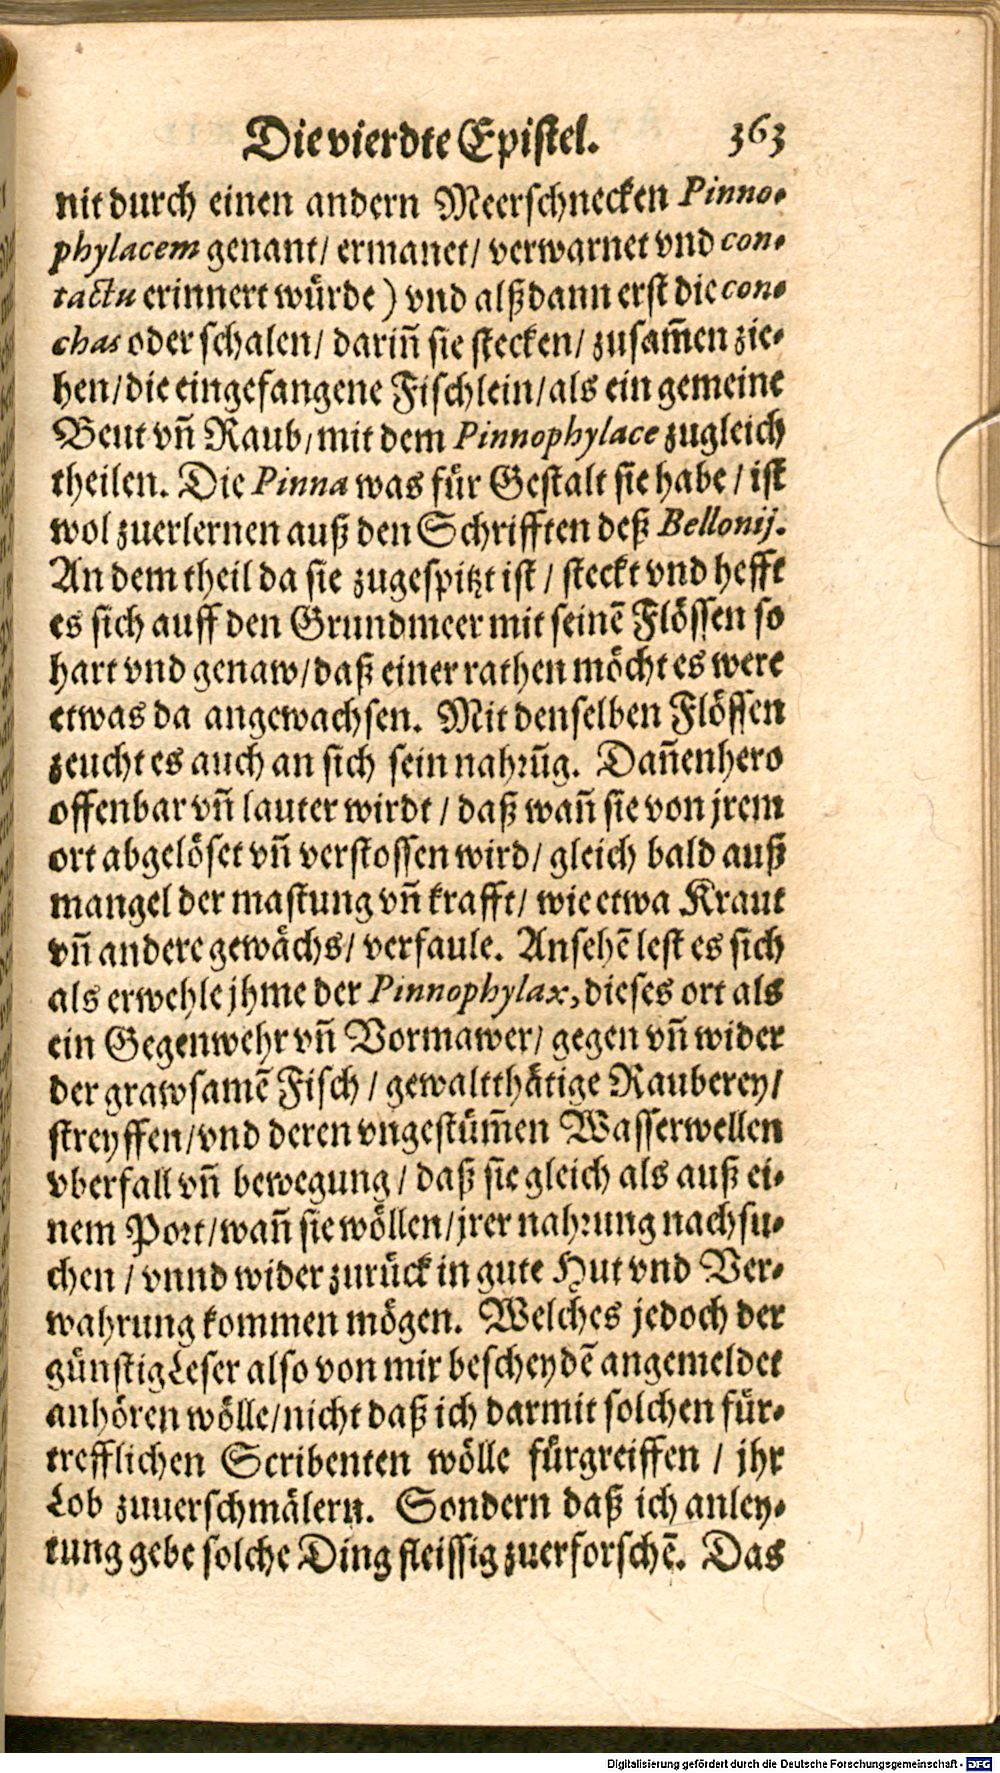 Die vierdte Epistel. 363
nit durch einen andern Meerschnecken Pinno-
phylacem genant/ ermanet/ verwarnet vnd con-
tactu erinnert würde) vnd alßdann erst die con-
chas oder schalen/ dariñ sie stecken/ zusam̃en zie-
hen/ die eingefangene Fischlein/ als ein gemeine
Beut vñ Raub/ mit dem Pinnophylace zugleich
theilen. Die Pinna was für Gestalt sie habe/ ist
wol zuerlernen auß den Schrifften deß Bellonij.
An dem theil da sie zugespitzt ist/ steckt vnd hefft
es sich auff den Grundmeer mit seinẽ Flössen so
hart vnd genaw/ daß einer rathen möcht es were
etwas da angewachsen. Mit denselben Flössen
zeucht es auch an sich sein nahrũg. Dañenhero
offenbar vñ lauter wirdt/ daß wañ sie von jrem
ort abgelöset vñ verstossen wird/ gleich bald auß
mangel der mastung vñ krafft/ wie etwa Kraut
vñ andere gewächs/ verfaule. Ansehẽ lest es sich
als erwehle jhme der Pinnophylax, dieses ort als
ein Gegenwehr vñ Vormawer/ gegen vñ wider
der grawsamẽ Fisch/ gewaltthätige Rauberey/
streyffen/ vnd deren vngestüm̃en Wasserwellen
vberfall vñ bewegung/ daß sie gleich als auß ei-
nem Port/ wañ sie wöllen/ jrer nahrung nachsu-
chen/ vnnd wider zurück in gute Hut vnd Ver-
wahrung kommen mögen. Welches jedoch der
günstig Leser also von mir bescheydẽ angemeldet
anhören wölle/ nicht daß ich darmit solchen für-
trefflichen Scribenten wölle fürgreiffen/ jhr
Lob zuuerschmälern. Sondern daß ich anley-
tung gebe solche Ding fleissig zuerforschẽ. Das
Digitalisierung gefördert durch die Deutsche Forschungsgemeinschaft - DFG